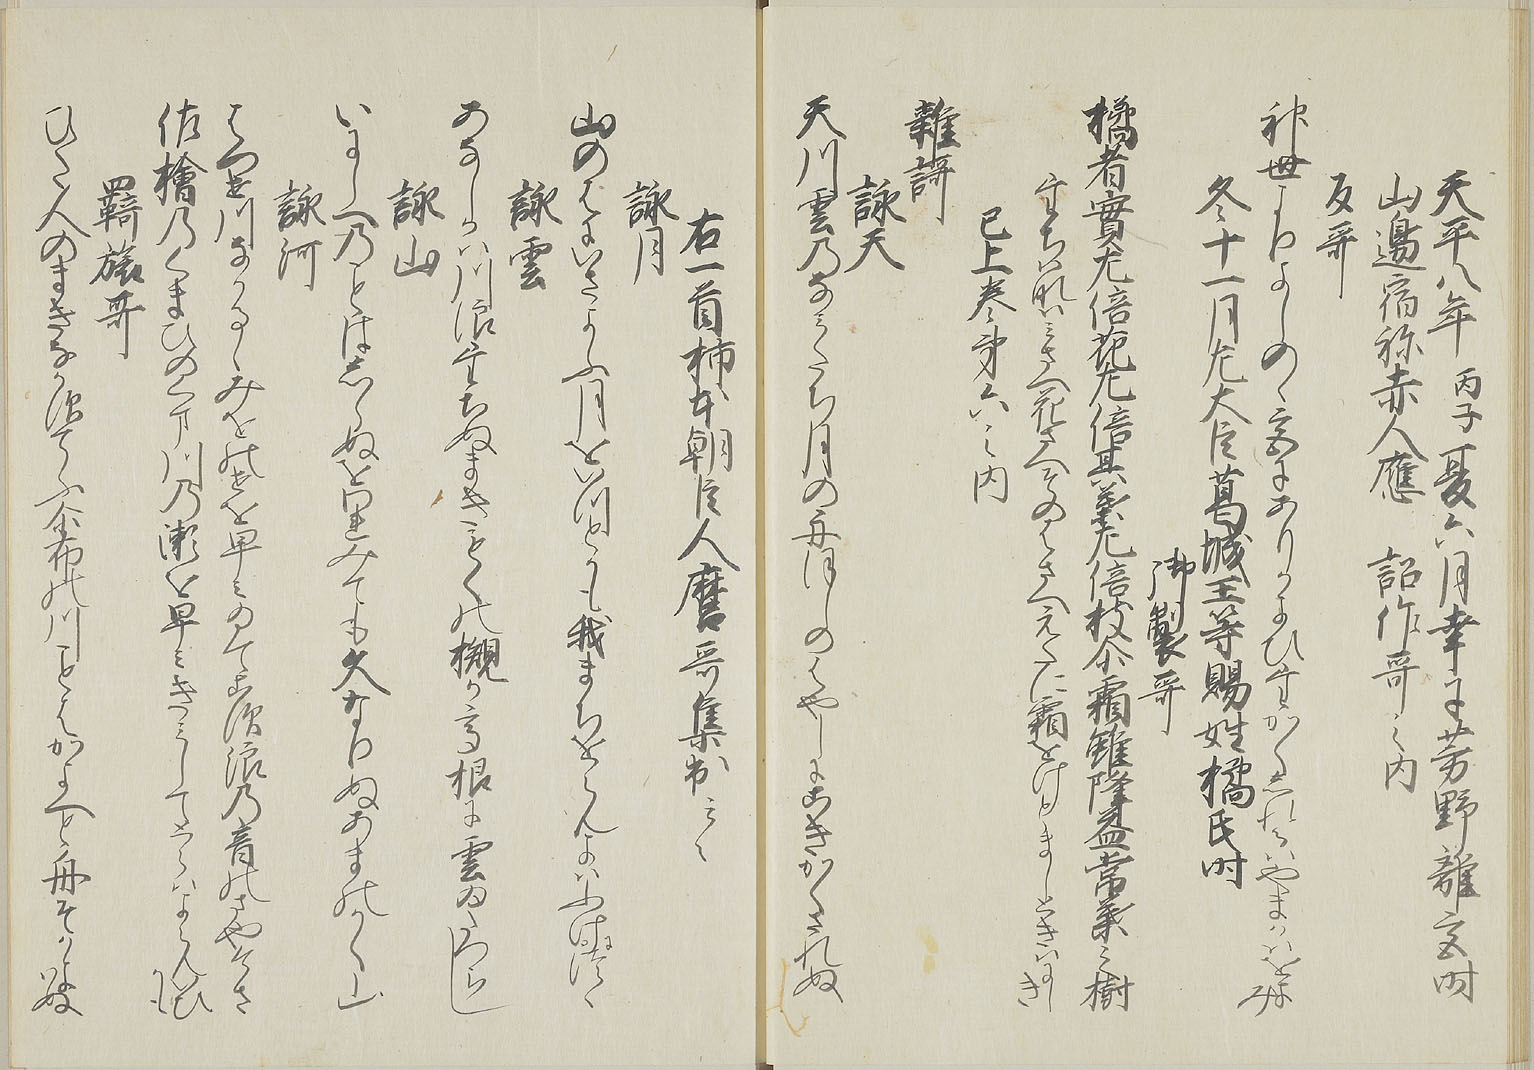 天平八年丙子夏六月幸于芳野離宮時
山邊宿祢赤人應　詔作哥之内
反哥
神世よりよしのゝ宮にありかよひたかくしれるはやまかはをよみ
冬十一月左大臣葛城王等賜姓橘氏時
御製哥
橘者實尤倍花尤倍其葉尤倍枝尒霜雖降益常葉之樹
たちはなはみさへ花さへそのはさへえたに霜をけとましときはのき
已上巻第六之内
雜謌
詠天
天川雲のなみたち月の舟ほしのはやしにこきかくされぬ
右一首柿本朝臣人麿哥集出云々
詠月
山のはにいさよふ月をいつとかも我まちをらんよはふけにつゝ
詠雲
あなしかは川浪たちぬまきもくの槻か高根に雲ゐたつらし
詠山
いにしへのことはしらぬを我みても久なりぬあまのかく山
詠河
はつせ川なかるゝみをのせを早みゐてこす浪の音のさやけさ
佐檜のくまひのくま川の瀬を早みきみしてとらはよらんひかも
羇旅哥
ひと人のまきなかすてふ尒布の川ことはかよへと舟そかよはぬ